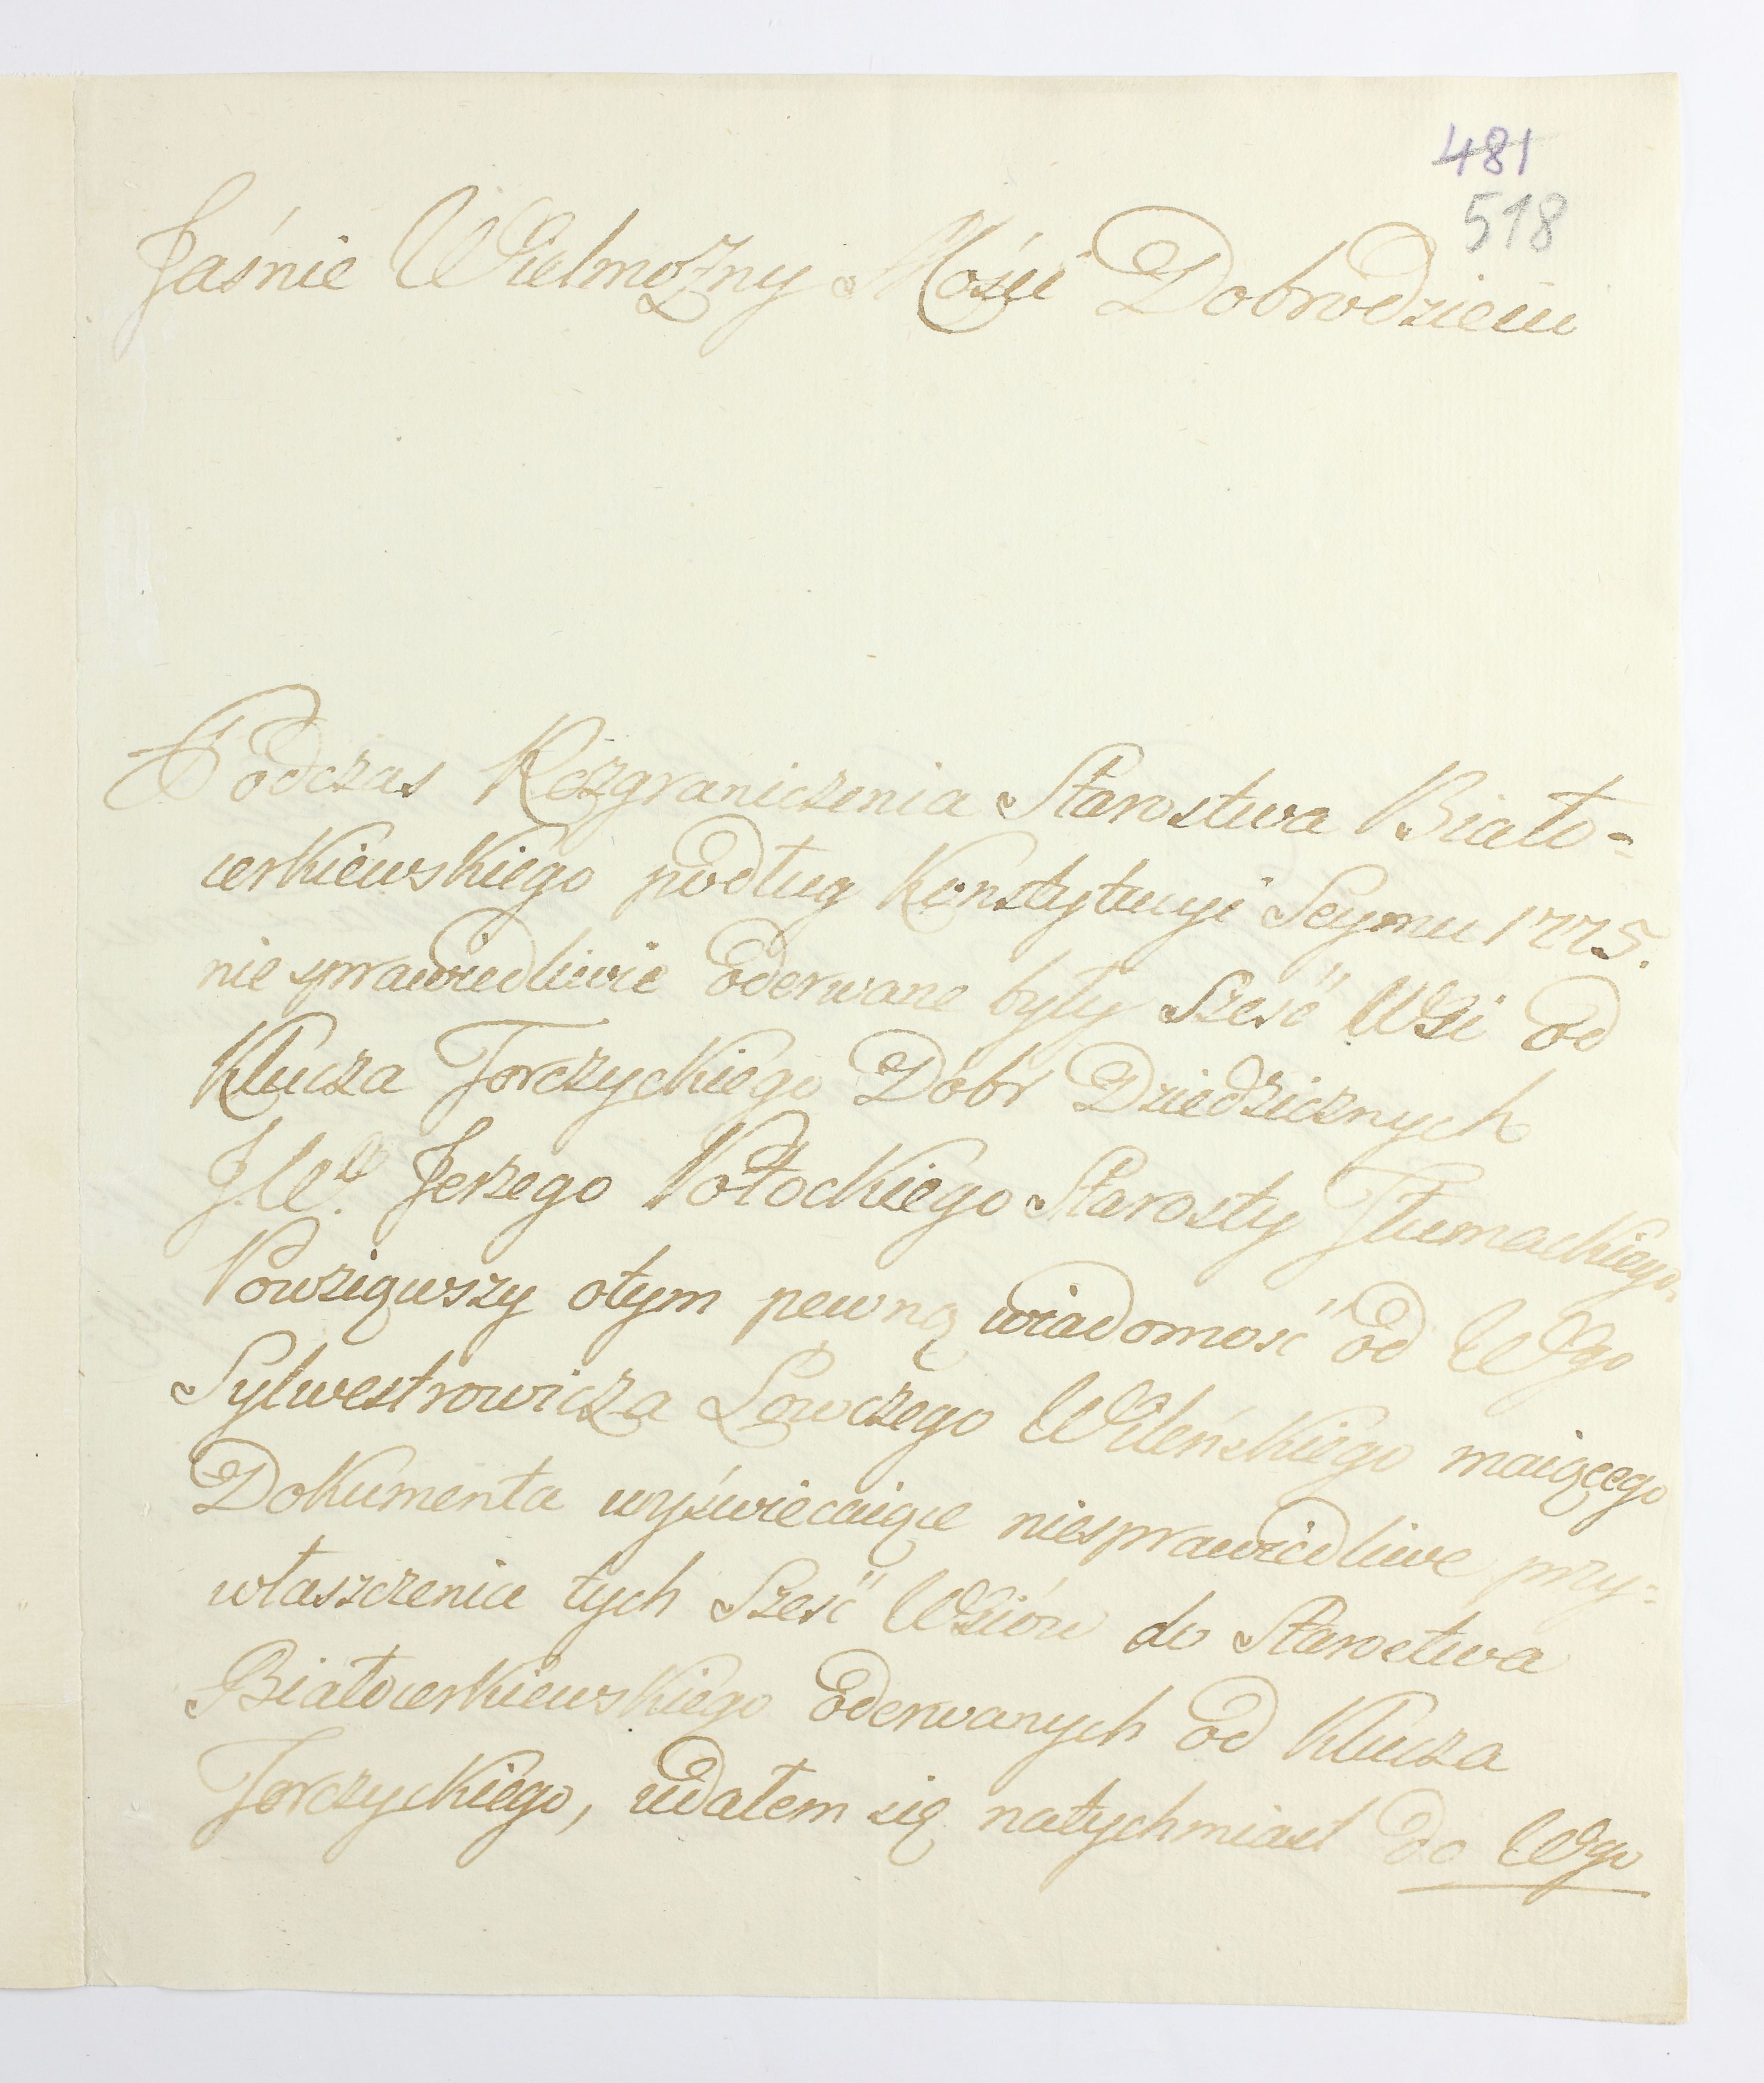 481
518
Jaśnie Wielmożny Mości Dobrodzieiu
Podczas Rozgraniczenia Starostwa Biało-
cerkiewskiego podług Konstytucyi Seymu 1775.
niesprawiedliwie oderwane były Sześć Wsi od
Klucza Torczyckiego Dóbr Dziedzicznych
J.W.º Jerzego Potockiego Starosty Tłumackiego.
Powziąwszy otym pewną wiadomość od Wgo
Sylwestrowicza Łowczego Wileńskiego maiącego
Dokumenta wyświecaiące niesprawiedliwe przy-
właszczenie tych Sześć Wsiów do Starostwa
Białocerkiewskiego oderwanych od Klucza
Torczyckiego, udałem się natychmiast do Wgo